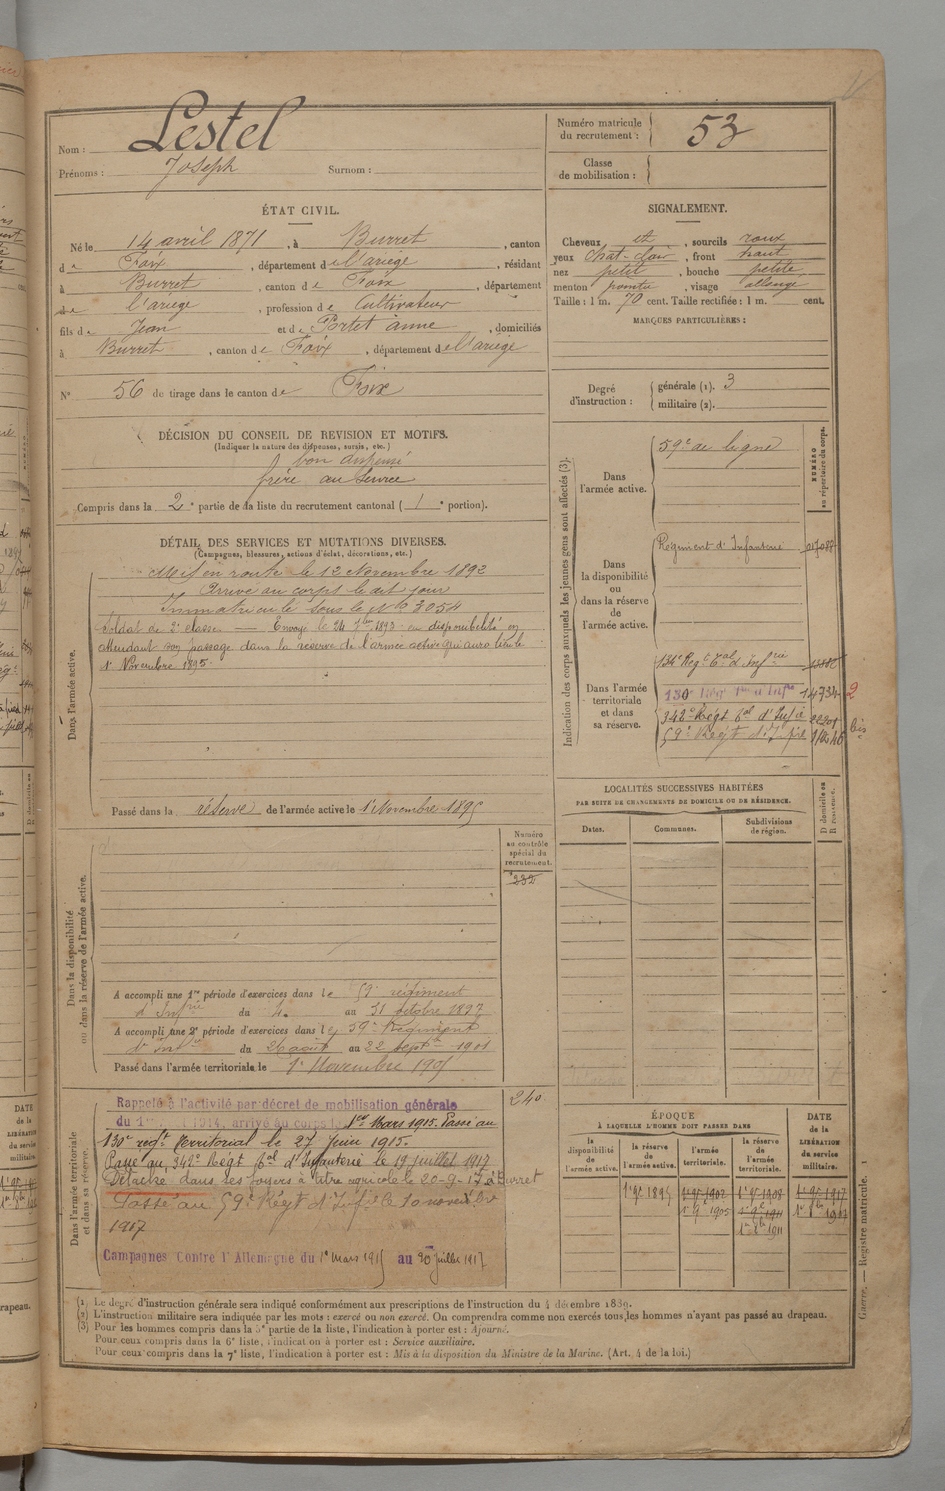 Nom : Lestel
Prénoms : Joseph Surnom :
Numéro matricule du recrutement : 53
Classe de mobilisation :
ÉTAT CIVIL.
Né le 14 avril 1871, à Burret, canton
de Foix, département de l'ariège, résidant
à Burret, canton de Foix, département
de l'ariège, profession de Cultivateur
fils de Jean et de Portet anne, domiciliés
à Burret, canton de Foix, département de l'ariège
N° 56 de tirage dans le canton de Foix
SIGNALEMENT.
Cheveux et, sourcils roux
yeux chat-clair, front haut
nez petit, bouche petite
menton pointu, visage allongé
Taille : 1 m. 70 cent. Taille rectifiée : 1 m. cent.
MARQUES PARTICULIÈRES :
Degré d'instruction : générale (1). 3
militaire (2).
DÉCISION DU CONSEIL DE REVISION ET MOTIFS.
(Indiquer la nature des dispenses, sursis, etc.)
bon dispensé
frère au service
Compris dans la 2e partie de la liste du recrutement cantonal (1e portion).
DÉTAIL DES SERVICES ET MUTATIONS DIVERSES.
(Campagnes, blessures, actions d'éclat, décorations, etc.)
Dans l'armée active.
Mis en route le 12 Novembre 1892
Arrivé au corps le dit jour
Immatriculé sous le N° 3054
Soldat de 2e classe — Envoyé le 24 7bre 1893 en disponibilité en
attendant son passage dans la reserve de l'armée active qui aura lieu le
1er Novembre 1895.
Passé dans la réserve de l'armée active le 1er Novembre 1895
Indication des corps auxquels les jeunes gens sont affectés (3).
NUMÉRO au répertoire du corps.
Dans l'armée active.
59e de ligne
Dans la disponibilité ou dans la réserve de l'armée active.
Régiment d'Infanterie
Dans l'armée territoriale et dans sa réserve.
134e Régt Tal d'Infrie
130e Régt
342e Régt Tal d'Inf ie
59e Régt d'Inf ie
bis
LOCALITÉS SUCCESSIVES HABITÉES
PAR SUITE DE CHANGEMENTS DE DOMICILE OU DE RÉSIDENCE.
Dates. Communes. Subdivisions de région. D domicile ou R résidence.
Numéro au contrôle spécial du recrutement.
232
Dans la disponibilité ou dans la réserve de l'armée active.
A accompli une 1re période d'exercices dans le 59e régiment
d'Infrie du 4 au 31 octobre 1897
A accompli une 2e période d'exercices dans le 59e Régiment
d'Infie du 26 août au 22 septbre 1901
Passé dans l'armée territoriale le 1er Novembre 1905
Dans l'armée territoriale et dans sa réserve.
240
Rappelé à l'activité par décret de mobilisation générale
du 1er 1914, arrivé au corps le 1er Mars 1915. Passé au
130e régt territorial le 27 Juin 1915.
Passé au 342e Régt Tal d'Infanterie le 19 juillet 1917
Détaché dans ses foyers à titre agricole le 20-9-17 à Burret
Passé au 59e Régt d'Inf ie le 10 novembre
1917
Campagnes Contre l'Allemagne du 1er mars 1915 au 20 juillet 1917
ÉPOQUE
À LAQUELLE L'HOMME DOIT PASSER DANS
la disponibilité de l'armée active. la réserve de l'armée active. l'armée territoriale. la réserve de l'armée territoriale. DATE de la LIBÉRATION du service militaire.
(1) Le degré d'instruction générale sera indiqué conformément aux prescriptions de l'instruction du 4 décembre 1889.
(2) L'instruction militaire sera indiquée par les mots : exercé ou non exercé. On comprendra comme non exercés tous les hommes n'ayant pas passé au drapeau.
(3) Pour les hommes compris dans la 5e partie de la liste, l'indication à porter est : Ajourné.
Pour ceux compris dans la 6e liste, l'indication à porter est : Service auxiliaire.
Pour ceux compris dans la 7e liste, l'indication à porter est : Mis à la disposition du Ministre de la Marine. (Art. 4 de la loi.)
Guerre. — Registre matricule. 1